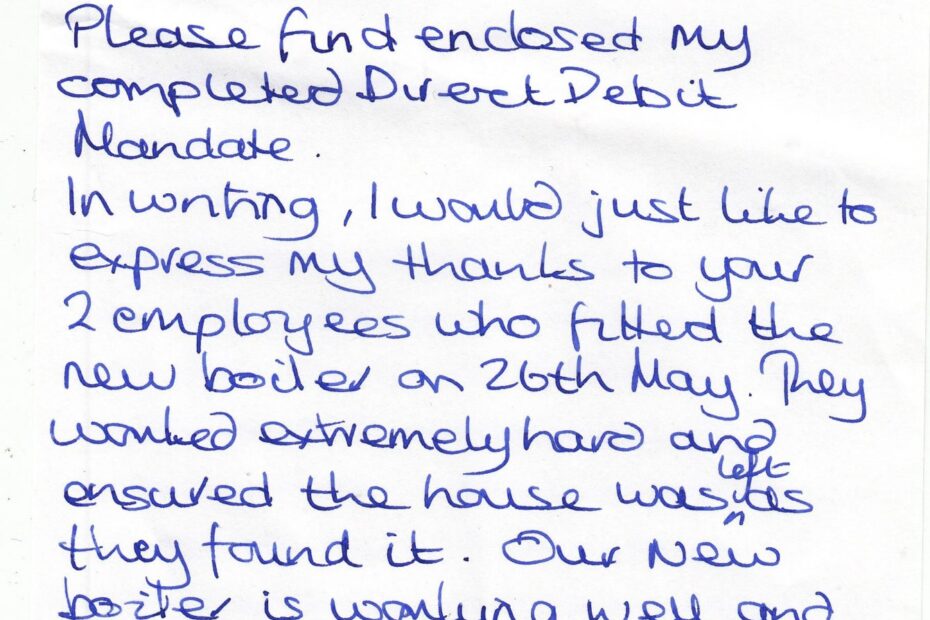 Please find enclosed my
completed Direct Debit
Mandate.
In writing, I would just like to
express my thanks to your
2 employees who fitted the
new boiler on 26th May. They
worked extremely hard and
left
ensured the house was as
they found it. Our New
boiler is working well and